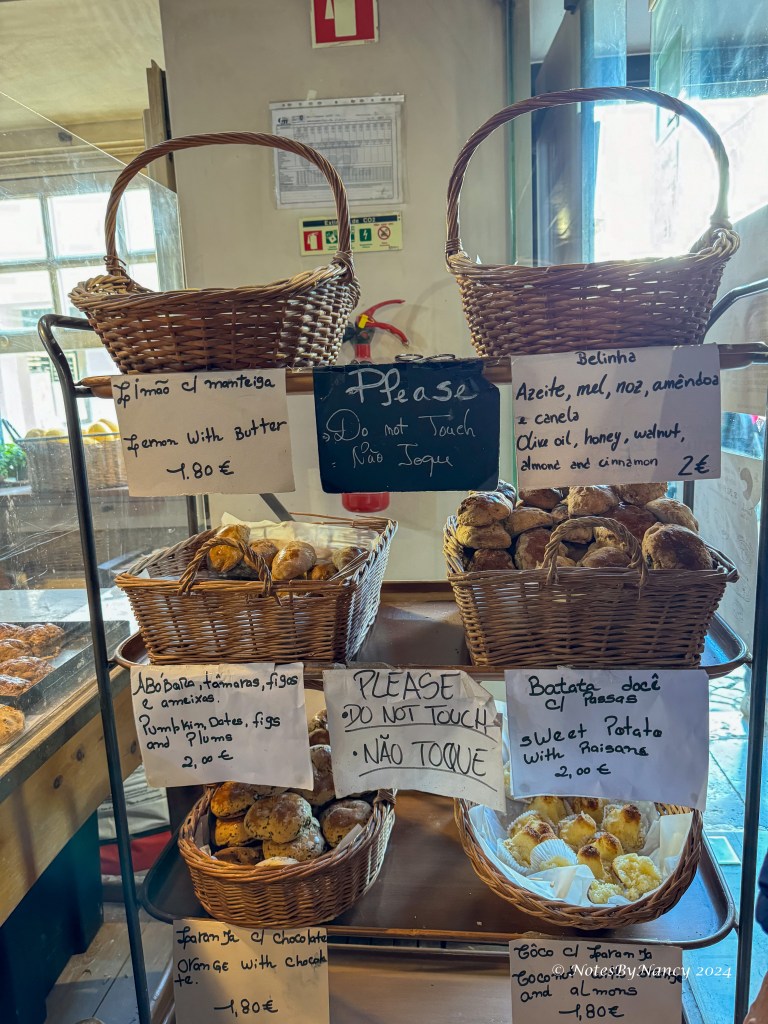 Extintor de CO2
Limão c/ manteiga
Lemon With Butter
1.80 €
Please
Do not Touch
Não Toque
Belinha
Azeite, mel, noz, amêndoa
e canela
Olive oil, honey, walnut,
almond and cinnamon 2€
Abóbora, tâmaras, figos
e ameixas.
Pumpkin, Dates, figs
and Plums
2,00 €
PLEASE
• DO NOT TOUCH
• NÃO TOQUE
Batata docê
c/ Passas
sweet Potato
With Raisans
2,00 €
Laranja c/ chocolate
Orange with chocola
te.
1,80 €
Côco c/ Laranja
Coconot with
and almons
1,80 €
© NotesByNancy 2024